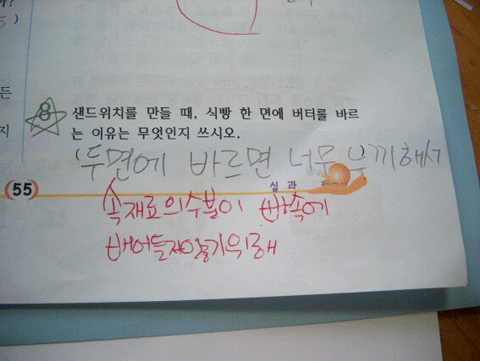 5)
든
지
8 샌드위치를 만들 때, 식빵 한 면에 버터를 바르
는 이유는 무엇인지 쓰시오.
(두면에 바르면 너무 느끼해서
55
실과
속재료의수분이 빵속에
배어들지않기위해